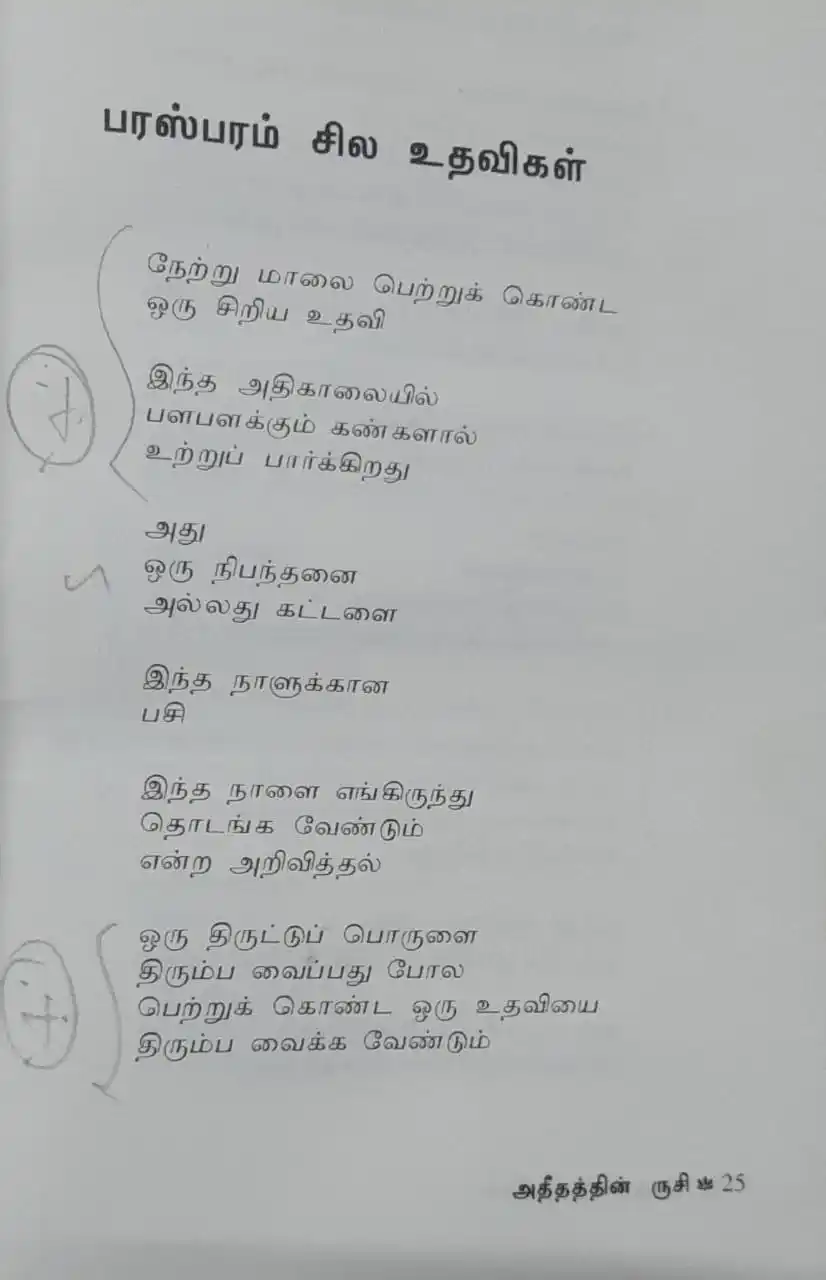 பரஸ்பரம் சில உதவிகள்
நேற்று மாலை பெற்றுக் கொண்ட
ஒரு சிறிய உதவி
இந்த அதிகாலையில்
பளபளக்கும் கண்களால்
உற்றுப் பார்க்கிறது
அது
ஒரு நிபந்தனை
அல்லது கட்டளை
இந்த நாளுக்கான
பசி
இந்த நாளை எங்கிருந்து
தொடங்க வேண்டும்
என்ற அறிவித்தல்
ஒரு திருட்டுப் பொருளை
திரும்ப வைப்பது போல
பெற்றுக் கொண்ட ஒரு உதவியை
திரும்ப வைக்க வேண்டும்
அதீதத்தின் ருசி ✽ 25